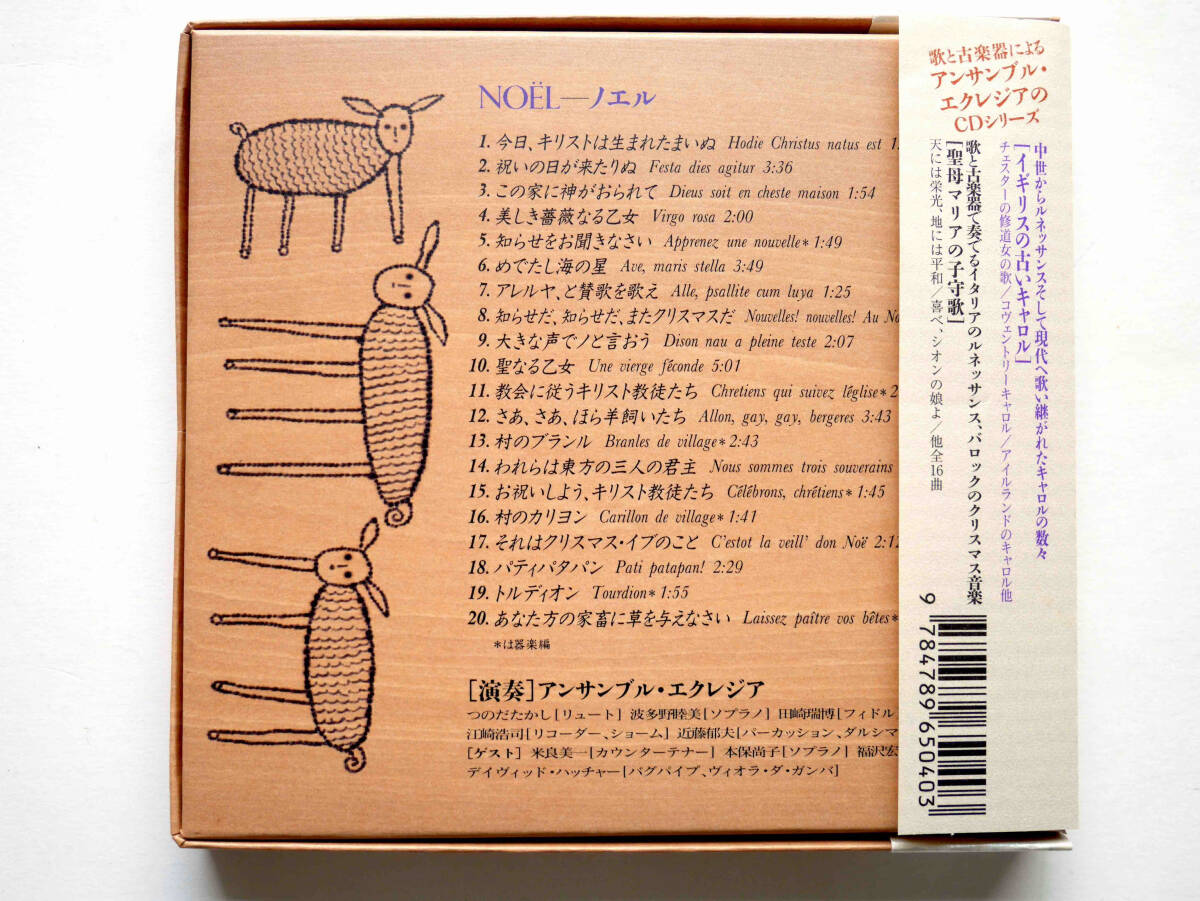 NOËL—ノエル
1. 今日、キリストは生まれたまいぬ Hodie Christus natus est 1
2. 祝いの日が来たりぬ Festa dies agitur 3:36
3. この家に神がおられて Dieus soit en cheste maison 1:54
4. 美しき薔薇なる乙女 Virgo rosa 2:00
5. 知らせをお聞きなさい Apprenez une nouvelle* 1:49
6. めでたし海の星 Ave, maris stella 3:49
7. アレルヤ、と賛歌を歌え Alle, psallite cum luya 1:25
8. 知らせだ、知らせだ、またクリスマスだ Nouvelles! nouvelles! Au No
9. 大きな声でノと言おう Dison nau a pleine teste 2:07
10. 聖なる乙女 Une vierge féconde 5:01
11. 教会に従うキリスト教徒たち Chretiens qui suivez l'église* 2
12. さあ、さあ、ほら羊飼いたち Allon, gay, gay, bergeres 3:43
13. 村のブランル Branles de village* 2:43
14. われらは東方の三人の君主 Nous sommes trois souverains
15. お祝いしよう、キリスト教徒たち Célébrons, chrétiens* 1:45
16. 村のカリヨン Carillon de village* 1:41
17. それはクリスマス・イブのこと C'estot la veill' don Noë 2:12
18. パティパタパン Pati patapan! 2:29
19. トルディオン Tourdion* 1:55
20. あなた方の家畜に草を与えなさい Laissez paître vos bêtes*
*は器楽編
[演奏]アンサンブル・エクレジア
つのだたかし[リュート] 波多野睦美[ソプラノ] 田崎瑞博[フィドル
江崎浩司[リコーダー、ショーム] 近藤郁夫[パーカッション、ダルシマ
[ゲスト] 米良美一[カウンターテナー] 本保尚子[ソプラノ] 福沢宏
デイヴィッド・ハッチャー[バグパイプ、ヴィオラ・ダ・ガンバ]
歌と古楽器による
アンサンブル・
エクレジアの
CDシリーズ
中世からルネッサンスそして現代へ歌い継がれたキャロルの数々
[イギリスの古いキャロル]
チェスターの修道女の歌/コヴェントリーキャロル/アイルランドのキャロル他
歌と古楽器で奏でるイタリアのルネッサンス、バロックのクリスマス音楽
[聖母マリアの子守歌]
天には栄光、地には平和/喜べ、シオンの娘よ/他全16曲
9784789650403